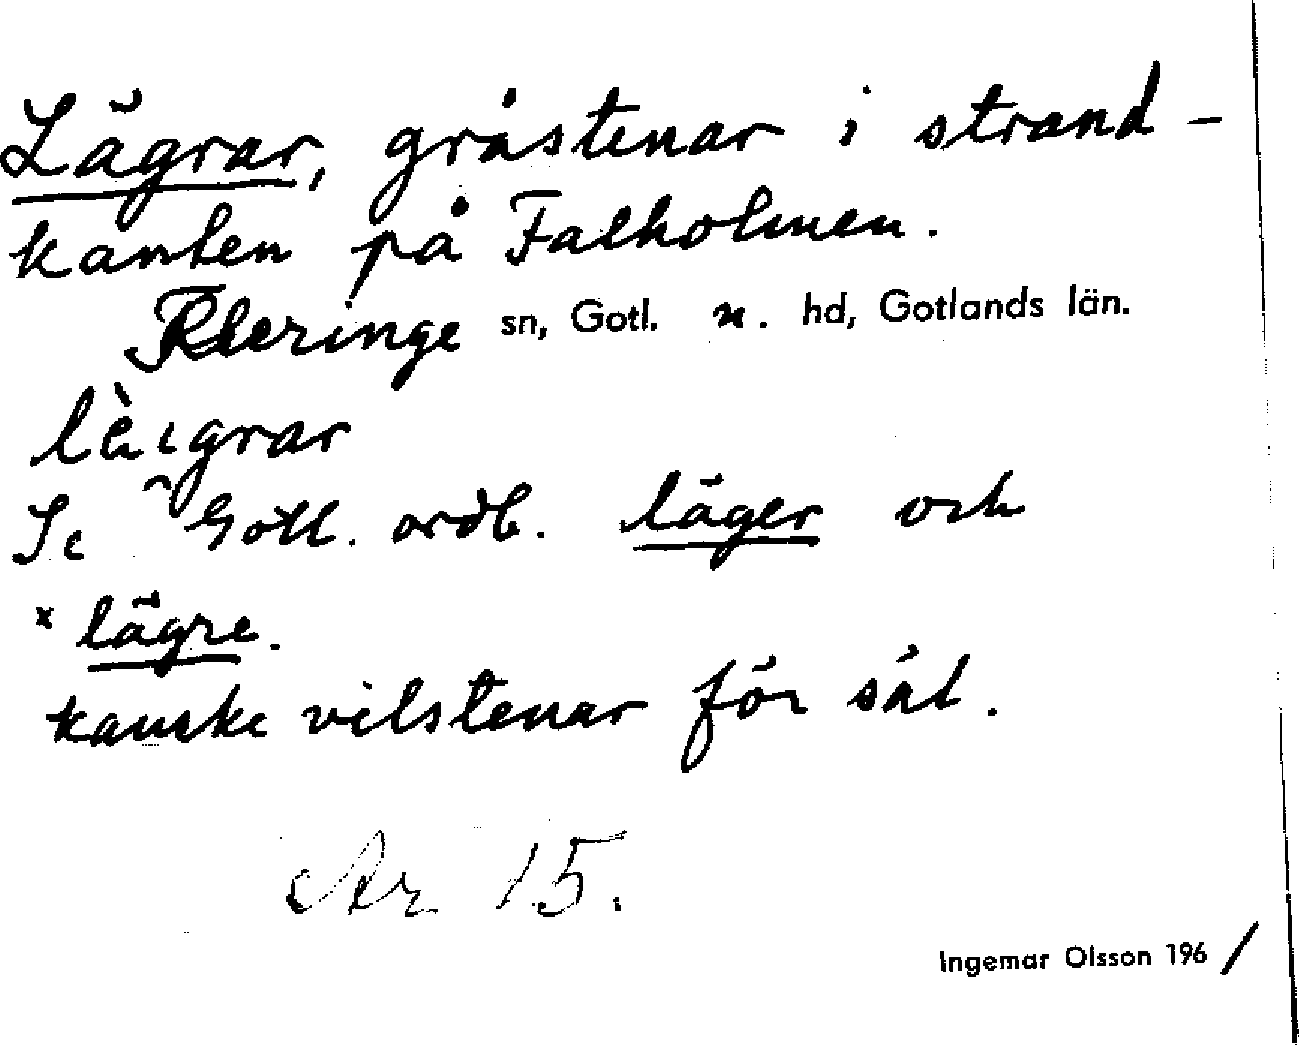 Lägrar, gråstenar i strand-
kanten på Falholmen.
Fleringe sn, Gotl. n. hd, Gotlands län.
lägrar
Se Gotl. ordb. läger och
*lägre.
kanske vilstenar för säl.
Nr 15.
Ingemar Olsson 196/